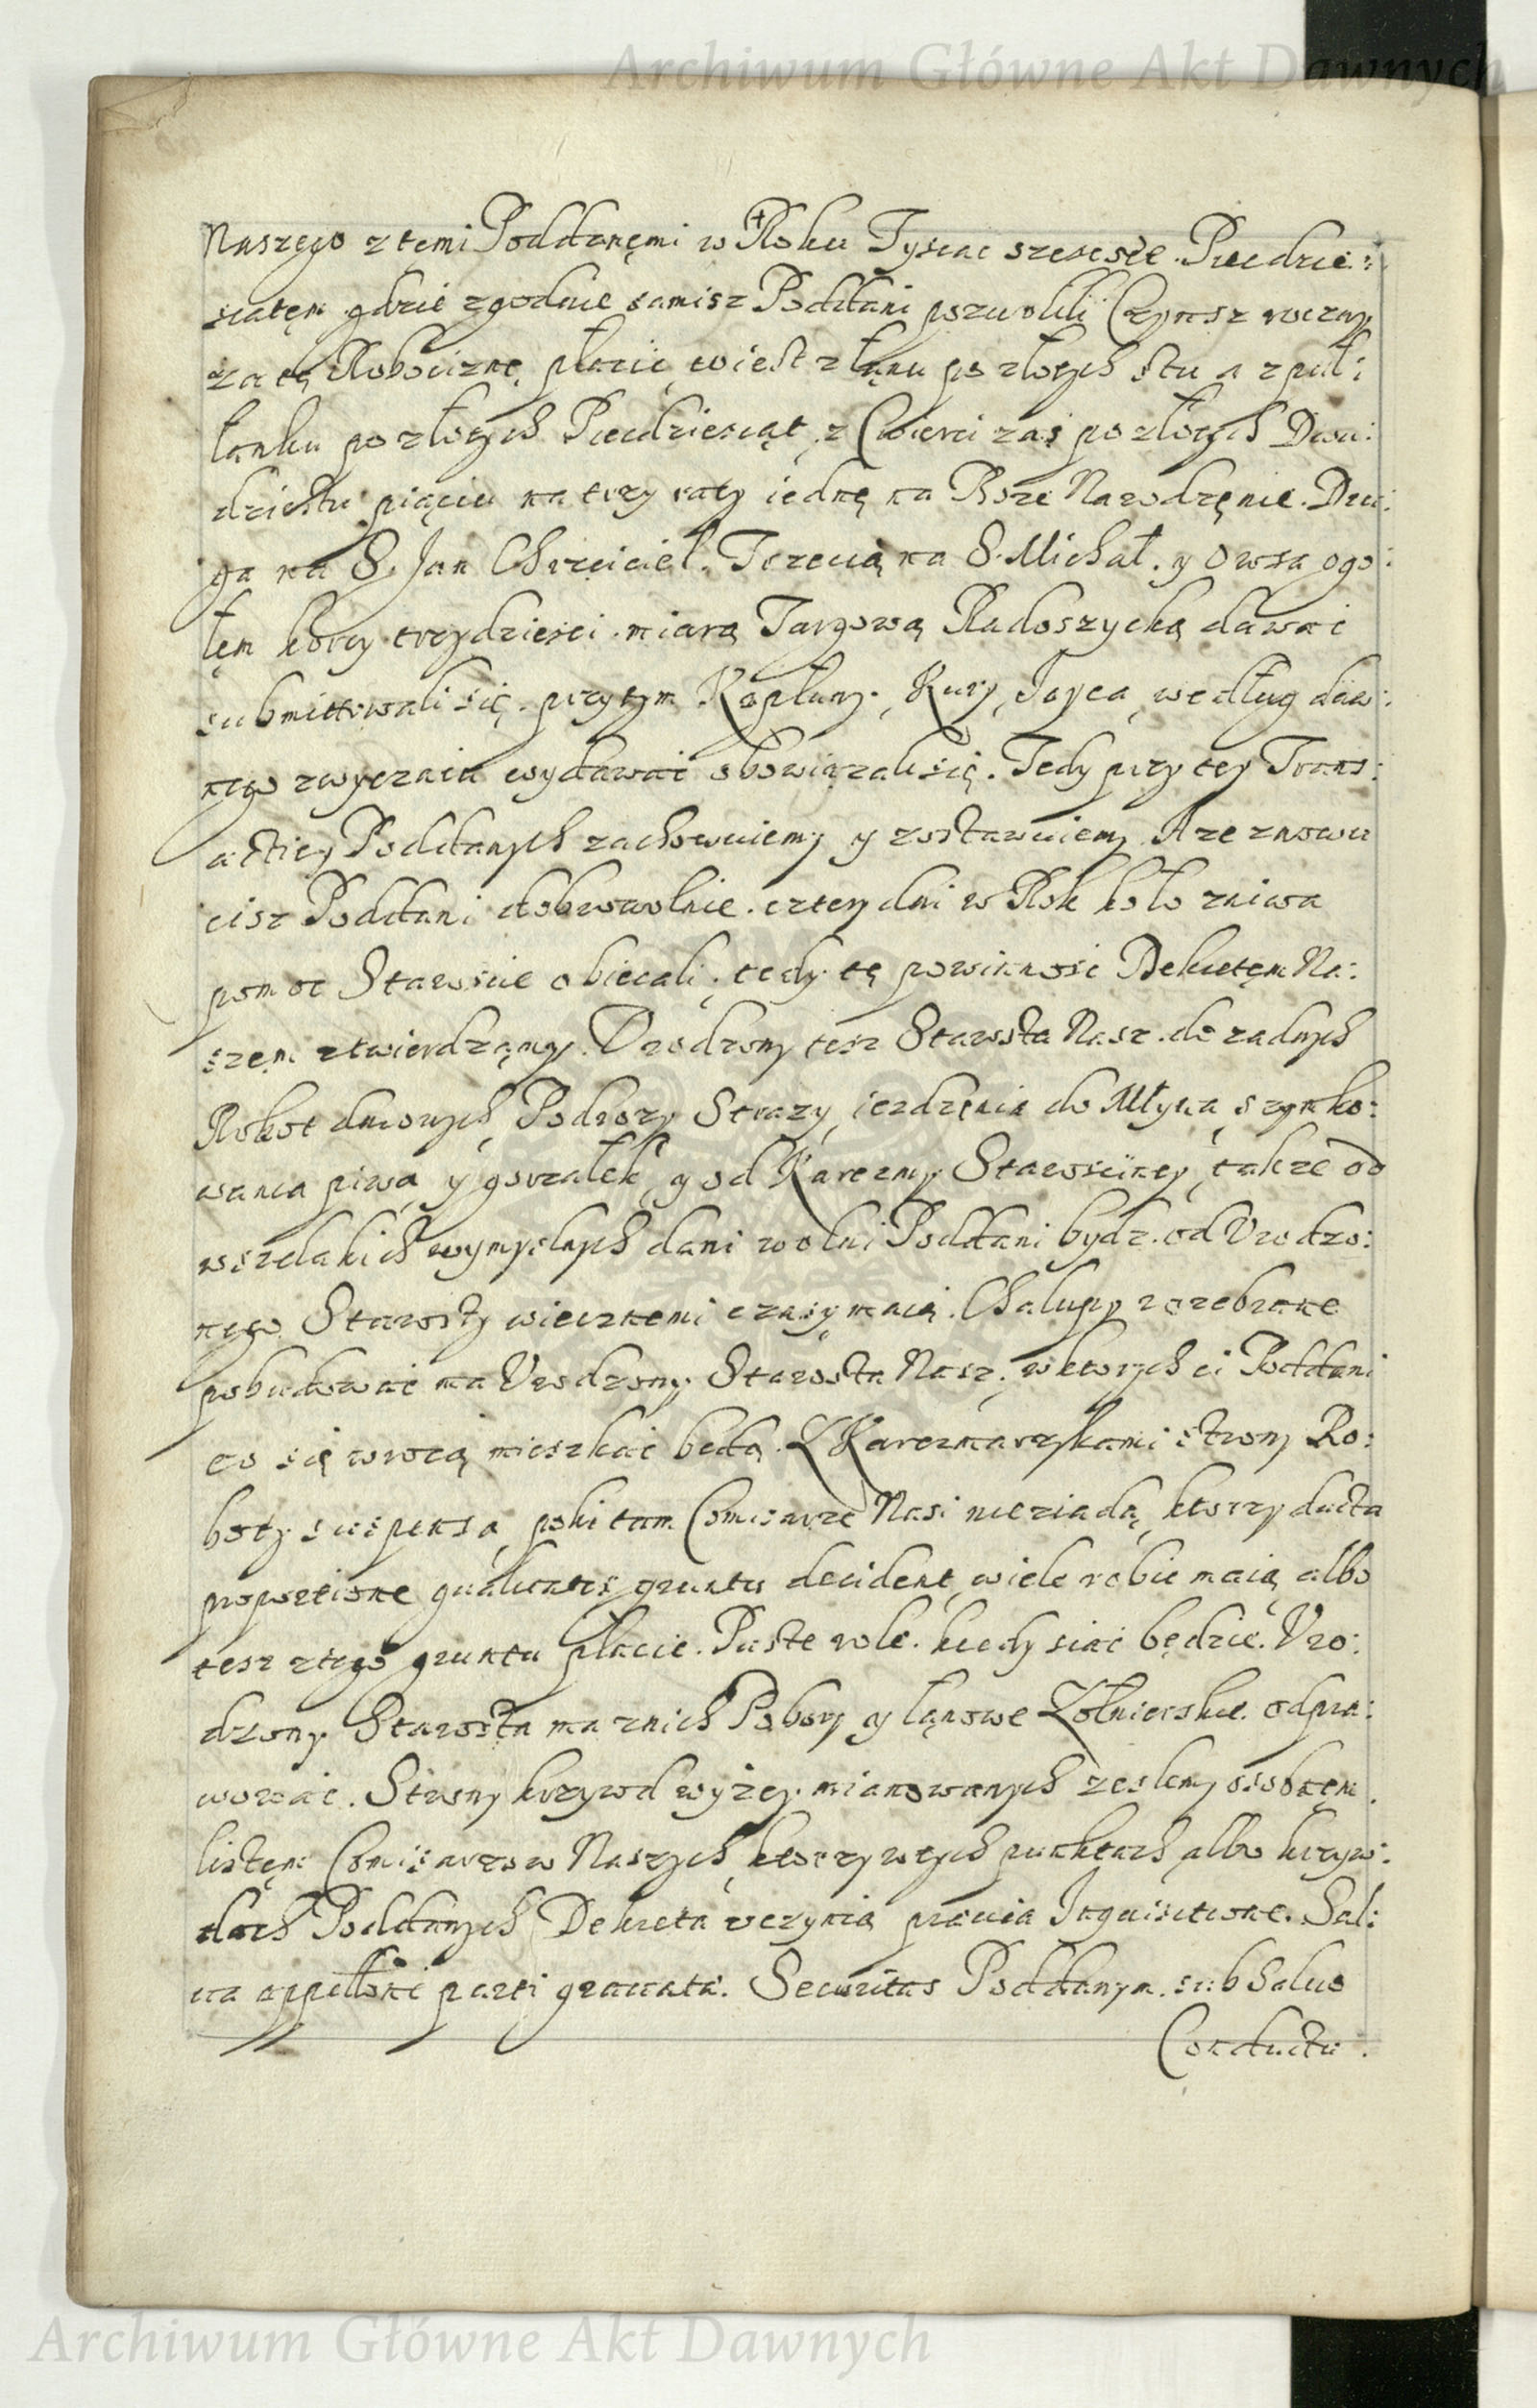 Archiwum Główne Akt Dawnych
Naszego z temi Poddanęmi w Roku Tysiac szescset. Piecdzie:
siatęm gdzie zgodnie samisz Poddani pozwolili Czynsz roczny
za tę Robociznę płacic, to iest z łanu po złotych stu a z puł:
łanku po złotych Piecdziesiąt, z Cwierci zaś po złotych Dwu:
dziestu piąciu na trzy raty iednę na Boze Narodzęnie. Dru:
ga na S. Jan Chrzciciel. Trzecią na S. Michał. y Owsa ogo:
łęm korcy trzydziesci miarą Targową Radoszycką dawac
submittowali się. przytym Kapłuny, Kury, Jayca, według daw:
nego zwyczaiu wydawać obowiązali się. Tedy przy tey Trans:
actiey Poddanych zachowuiemy y zostawuiemy. A ze znowu
cisz Poddani dobrowolnie. cztery dni w Rok koło zniwa
pomoc Staroscie obiecali, tedy tę powinnosc Dekretęm Na:
szęm ztwierdzamy. Urodzony tesz Starosta Nasz. do zadnych
Robot dwornych, Podrozy Strazy, iezdzęnia do Młyna, szynko:
wania piwa y gorzałek, y od Karczmy Starosciney, takze od
wszelakich wymyslnych dani wolni Poddani bydz. od Urodzo:
nego Starosty wiecznemi czasy maią. Chalupy rozebrane
pobudować ma Urodzony Starosta Nasz, w ktorych ci Poddani
co się wrocą mieszkać będą. Z Karczmarzkami strony Ro:
boty suspensa, poki tam Comisarze Nasi nieziadą, ktorzy ducta
proportione qualitatis gruntu decident, wiele robic maią albo
tesz z tego gruntu płacic. Puste role. kiedy siać będzie. Uro:
dzony Starosta ma z nich Pobory y łanowe Zołnierskie. odpra:
wować. Strony krzywd wyżey mianowanych zeslemy osobnęm
listęm Comisarzow Naszych, ktorzy w tych punktach albo krzyw:
dach Poddanych Dekreta uczynią praevia Inquisitione. Sal:
va appellõne parti gravatae. Securitas Poddanym. sub Salvo
Conductu.
Archiwum Główne Akt Dawnych